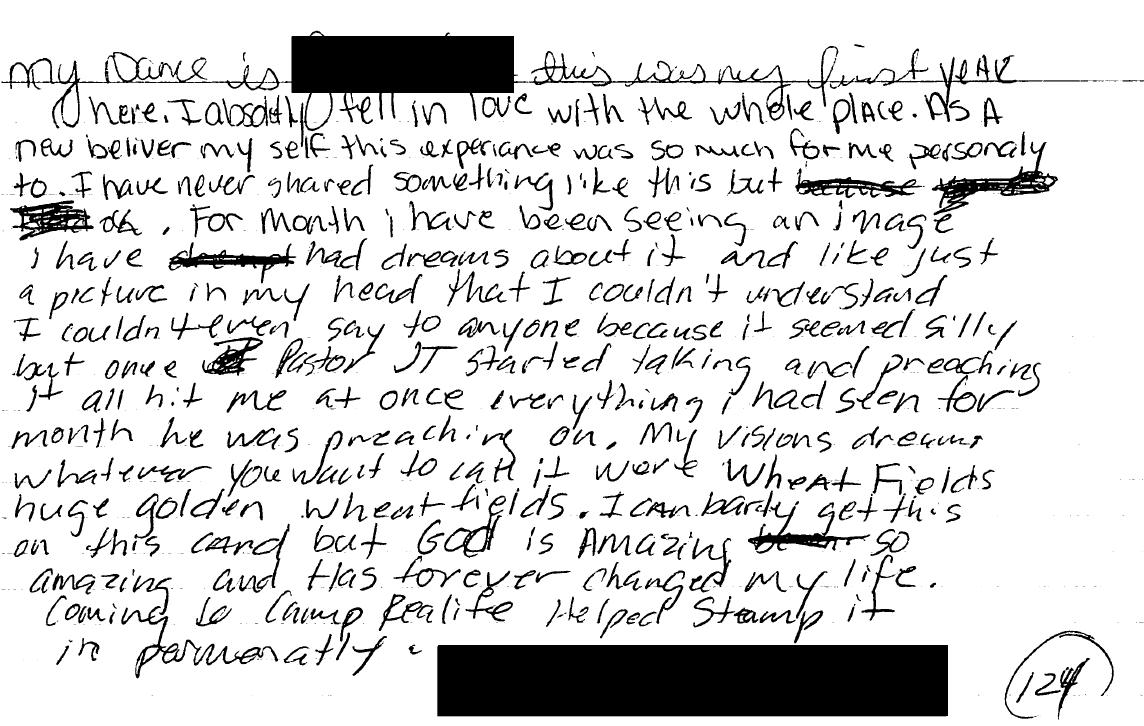 My Name is this was my first year
here. I absolutly fell in love with the whole place. As A
new beliver my self this experiance was so much for me personaly
to. I have never shared something like this but
ok. For month i have been seeing an image
i have had dreams about it and like just
a picture in my head that I couldn't understand
I couldn't even say to anyone because it seemed silly
but once Pastor JT started talking and preaching
it all hit me at once everything i had seen for
month he was preaching on. My visions dreams
whatever you want to call it were Wheat Fields
huge golden wheat fields. I can bardy get this
on this card but God is Amazing so
amazing and Has forever changed my life.
Coming to Camp Realife Helped Stamp it
in permenatly.
124